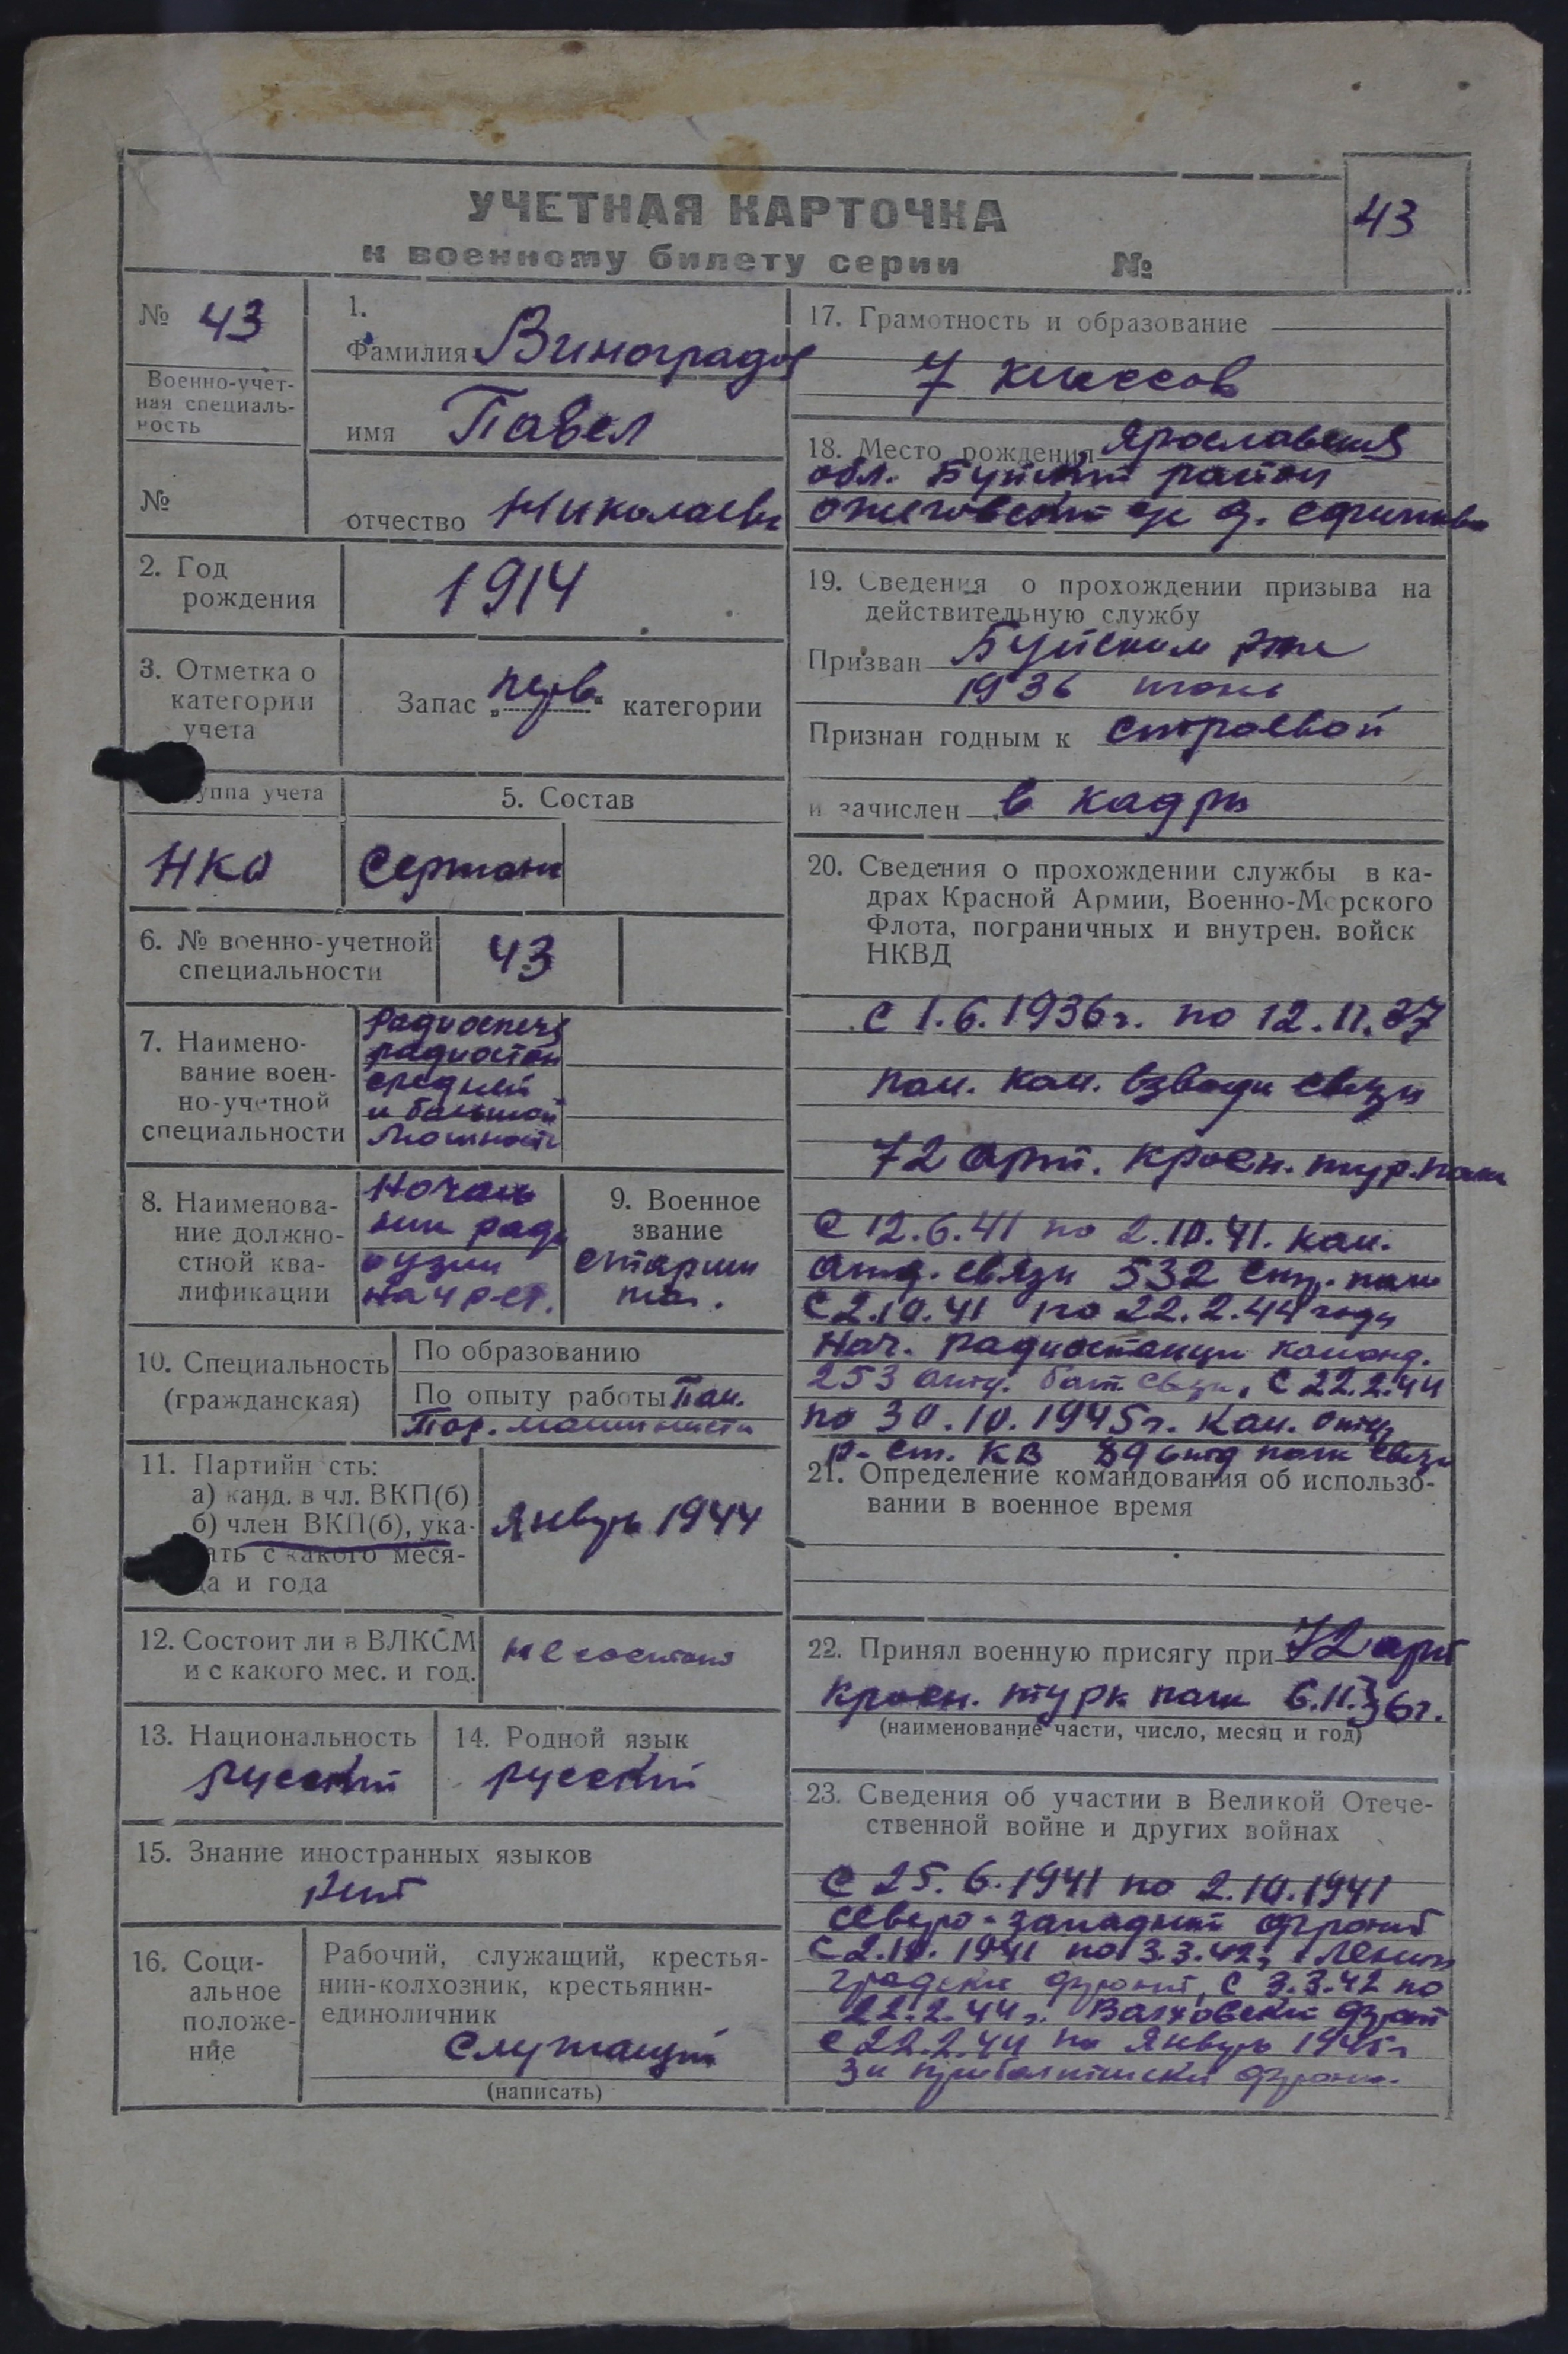 УЧЕТНАЯ КАРТОЧКА
к военному билету серии №
43
№ 43
Военно-учет-
ная специаль-
ность
№
1.
Фамилия Виноградов
имя Павел
отчество Николаевич
2. Год
рождения
1914
3. Отметка о
категории
учета
Запас „перв“ категории
группа учета
НКО
5. Состав
Сержант
6. № военно-учетной
специальности
43
7. Наимено-
вание воен-
но-учетной
специальности
радиоспец
радиостан
средней
и большой
мощности
8. Наименова-
ние должно-
стной ква-
лификации
Началь
ник ради
оузла
нач р-ст.
9. Военное
звание
старши
на.
10. Специальность
(гражданская)
По образованию
По опыту работы Пом.
Пар. машиниста
11. Партийн сть:
а) канд. в чл. ВКП(б)
б) член ВКП(б), ука-
ать с какого меся-
ца и года
Январь 1944
12. Состоит ли в ВЛКСМ
и с какого мес. и год.
не состоит
13. Национальность
русский
14. Родной язык
русский
15. Знание иностранных языков
нет
16. Соци-
альное
положе-
ние
Рабочий, служащий, крестья-
нин-колхозник, крестьянин-
единоличник
Служащий
(написать)
17. Грамотность и образование
7 классов
18. Место рождения Ярославская
обл. Буйский район
д. Ефимово
19. Сведения о прохождении призыва на
действительную службу
Призван Буйским
1936 июнь
Признан годным к строевой
и зачислен в кадры
20. Сведения о прохождении службы в ка-
драх Красной Армии, Военно-Морского
Флота, пограничных и внутрен. войск
НКВД
с 1.6.1936г. по 12.11.37
пом. ком. взвода связи
72 арт. красн. тур. полк
С 12.6.41 по 2.10.41. ком.
отд. связи 532 стр. полк
С 2.10.41 по 22.2.44 года
Нач. радиостанции команд.
253 отд. бат. связи, С 22.2.44
по 30.10.1945г. Ком. отд
р-ст. КВ 89 отд полк связи
21. Определение командования об использо-
вании в военное время
22. Принял военную присягу при 72 арт
красн. турк полк 6.11.36г.
(наименование части, число, месяц и год)
23. Сведения об участии в Великой Отече-
ственной войне и других войнах
С 25.6.1941 по 2.10.1941
северо-западный фронт
С 2.10.1941 по 3.3.42г Ленин
градски фронт, С 3.3.42 по
22.2.44г. Волховски фронт
с 22.2.44 по Январь 1945г
3й прибалтийски фронт.